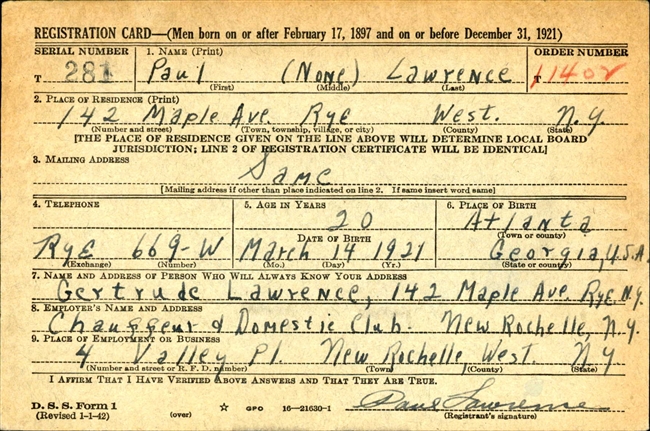 REGISTRATION CARD—(Men born on or after February 17, 1897 and on or before December 31, 1921)
SERIAL NUMBER 1. NAME (Print) ORDER NUMBER
T 281 Paul (None) Lawrence T 11402
(First) (Middle) (Last)
2. PLACE OF RESIDENCE (Print)
142 Maple Ave. Rye West. N.Y.
(Number and street) (Town, township, village, or city) (County) (State)
[THE PLACE OF RESIDENCE GIVEN ON THE LINE ABOVE WILL DETERMINE LOCAL BOARD
JURISDICTION; LINE 2 OF REGISTRATION CERTIFICATE WILL BE IDENTICAL]
3. MAILING ADDRESS
Same
[Mailing address if other than place indicated on line 2. If same insert word same]
4. TELEPHONE 5. AGE IN YEARS 6. PLACE OF BIRTH
20 Atlanta
DATE OF BIRTH (Town or county)
Rye 669-W March 14 1921 Georgia, U.S.A.
(Exchange) (Number) (Mo.) (Day) (Yr.) (State or country)
7. NAME AND ADDRESS OF PERSON WHO WILL ALWAYS KNOW YOUR ADDRESS
Gertrude Lawrence, 142 Maple Ave. Rye, N.Y.
8. EMPLOYER'S NAME AND ADDRESS
Chauffeur & Domestic Club. New Rochelle, N.Y.
9. PLACE OF EMPLOYMENT OR BUSINESS
4 Valley Pl. New Rochelle, West. N Y
(Number and street or R. F. D. number) (Town) (County) (State)
I AFFIRM THAT I HAVE VERIFIED ABOVE ANSWERS AND THAT THEY ARE TRUE.
D. S. S. Form 1
(Revised 1-1-42) (over) ☆ GPO 16—21630-1 Paul Lawrence
(Registrant's signature)